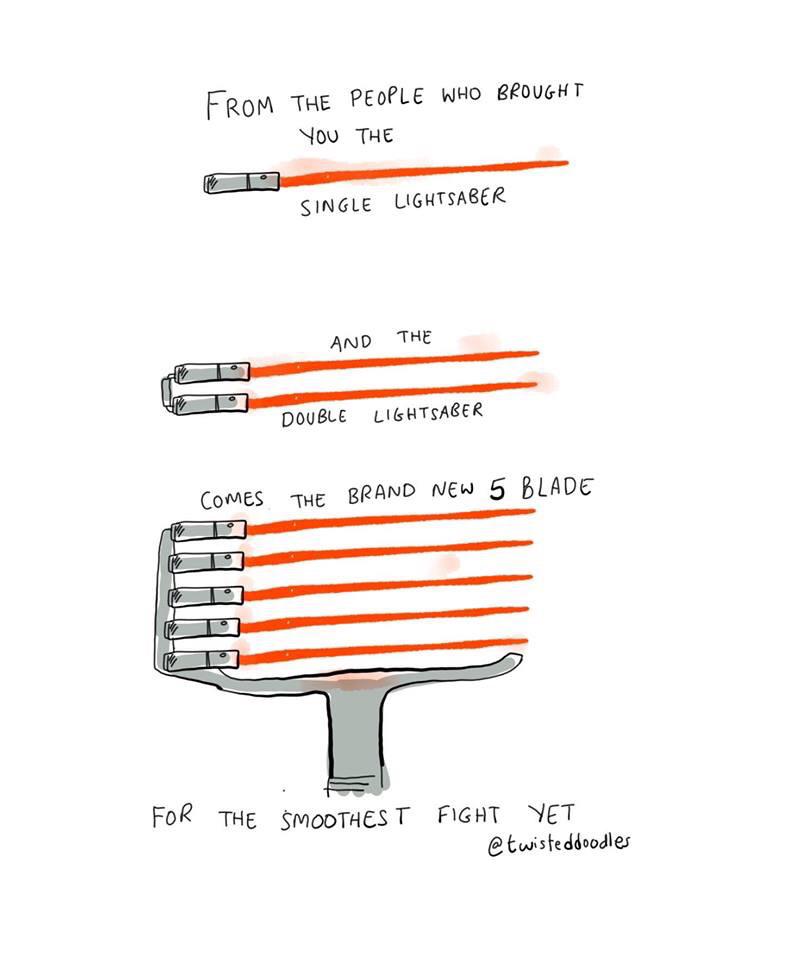 FROM THE PEOPLE WHO BROUGHT
YOU THE
SINGLE LIGHTSABER
AND THE
DOUBLE LIGHTSABER
COMES THE BRAND NEW 5 BLADE
FOR THE SMOOTHEST FIGHT YET
@twisteddoodles